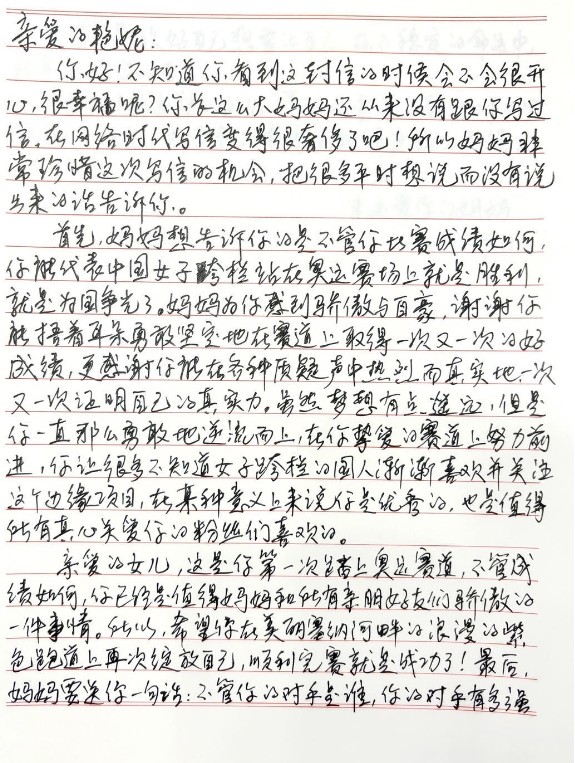 亲爱的艳妮：
你好！不知道你看到这封信的时候会不会很开
心，很幸福呢？你长这么大妈妈还从来没有跟你写过
信。在网络时代写信变得很奢侈了吧！所以妈妈非
常珍惜这次写信的机会，把很多平时想说而没有说
出来的话告诉你。
首先，妈妈想告诉你的是不管你比赛成绩如何，
你能代表中国女子跨栏站在奥运赛场上就是胜利，
就是为国争光了。妈妈为你感到骄傲与自豪，谢谢你
能捂着耳朵勇敢坚定地在赛道上取得一次又一次的好
成绩，更感谢你能在各种质疑声中热烈而真实地一次
又一次证明自己的真实力。虽然梦想有点遥远，但是
你一直那么勇敢地逆流而上，在你挚爱的赛道上努力前
进，你让很多不知道女子跨栏的国人渐渐喜欢并关注
这个边缘项目，在某种意义上来说你是优秀的，也是值得
所有真心关爱你的粉丝们喜欢的。
亲爱的女儿，这是你第一次踏上奥运赛道，不管成
绩如何，你已经是值得妈妈和所有亲朋好友们骄傲的
一件事情。所以，希望你在美丽塞纳河畔的浪漫的紫
色跑道上再次绽放自己，顺利完赛就是成功了！最后，
妈妈要送你一句话：不管你的对手是谁，你的对手有多强